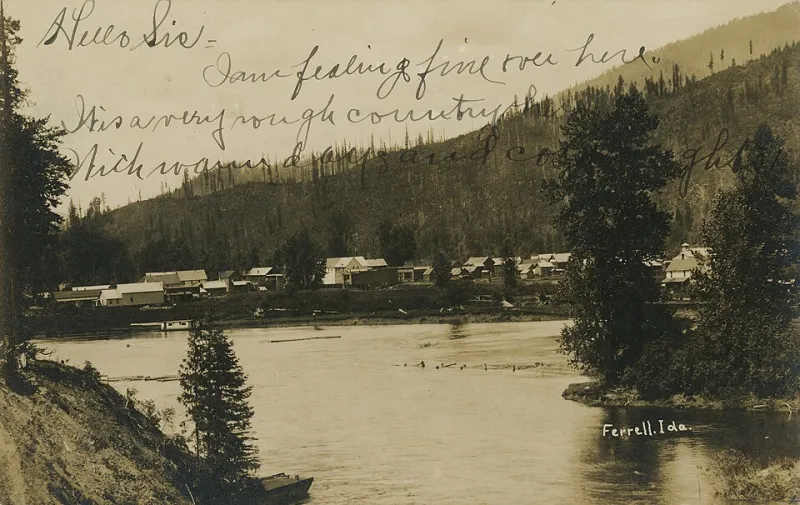 Hello Sis -
I am fealing fine over here.
Itis a very rough country
With warm days and
Ferrell, Ida.